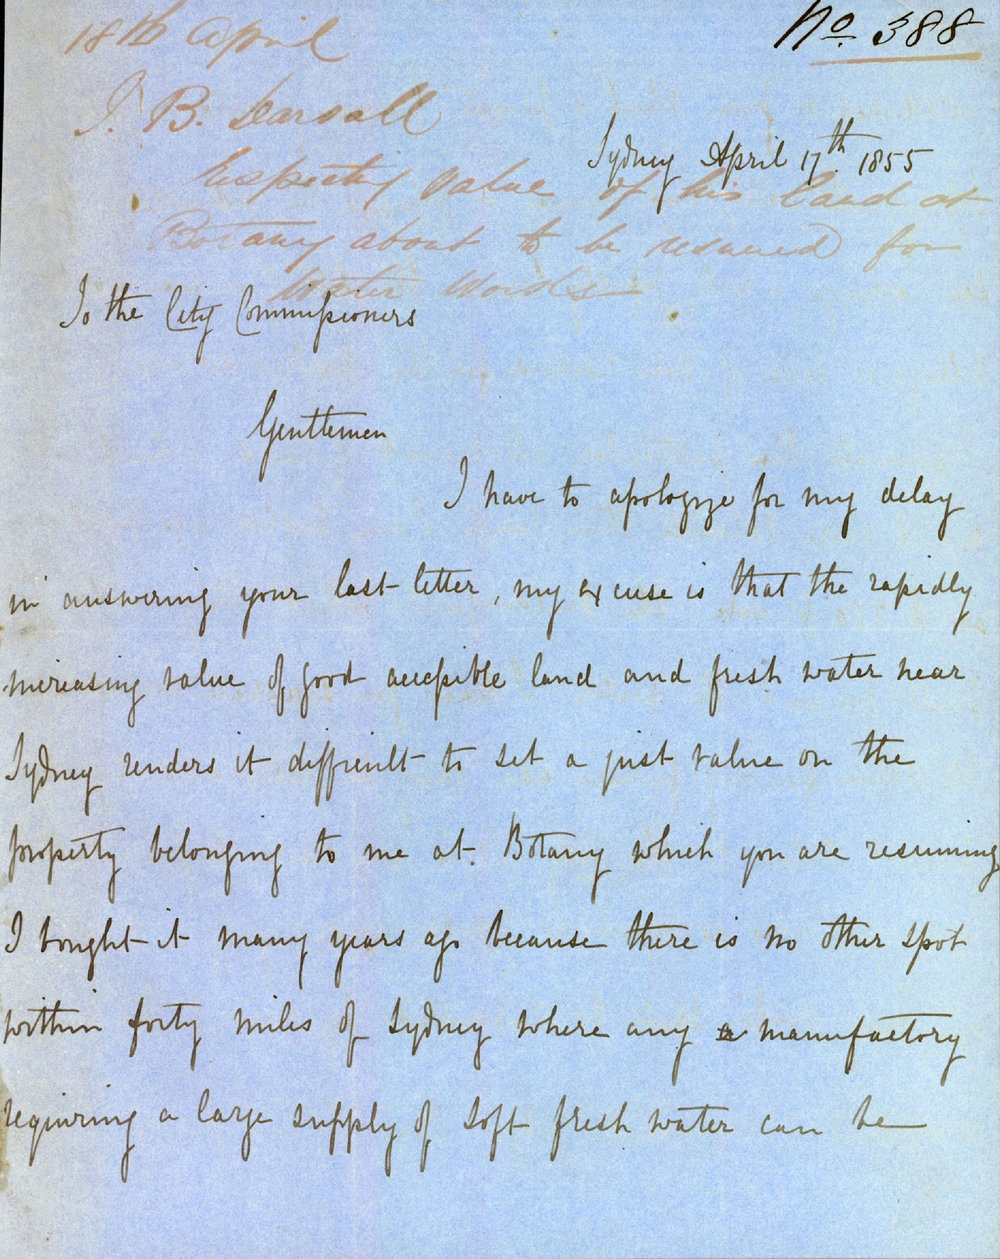 No. 388
18th April
J. B. Darvall
Respecting value of his land at
Botany about to be resumed for
Water Works
Sydney April 17th. 1855
To the City Commissioners
Gentlemen
I have to apologize for my delay
in answering your last letter, my excuse is that the rapidly
increasing value of good accessible land and fresh water near
Sydney renders it difficult to set a just value on the
property belonging to me at Botany which you are resuming
I bought it many years ago because there is no other spot
within forty miles of Sydney where any a manufactory
requiring a large supply of soft fresh water can be